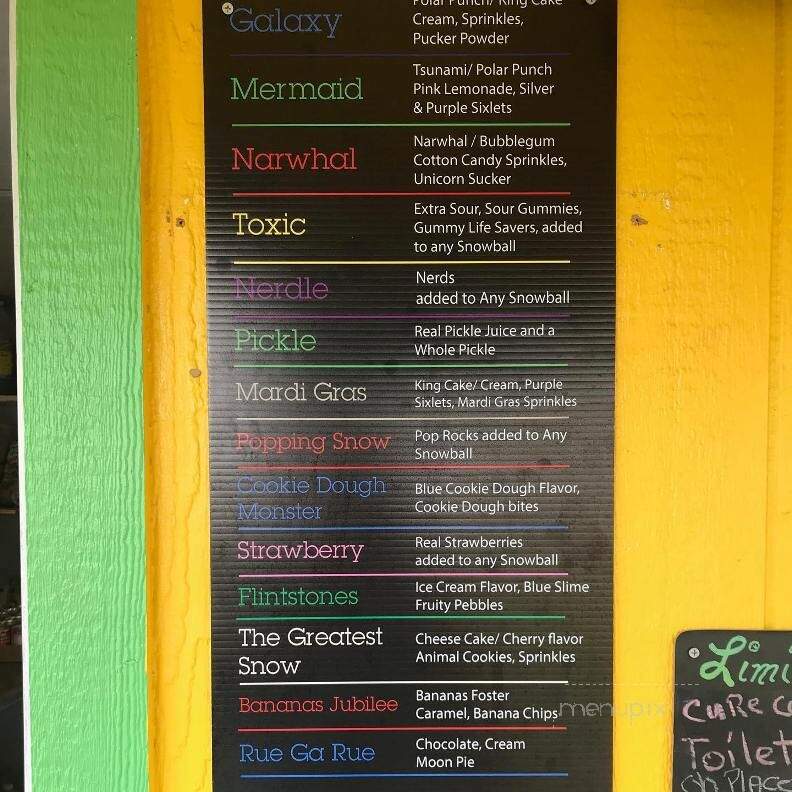 Galaxy
Polar Punch/ King Cake
Cream, Sprinkles,
Pucker Powder
Mermaid
Tsunami/ Polar Punch
Pink Lemonade, Silver
& Purple Sixlets
Narwhal
Narwhal / Bubblegum
Cotton Candy Sprinkles,
Unicorn Sucker
Toxic
Extra Sour, Sour Gummies,
Gummy Life Savers, added
to any Snowball
Nerdle
Nerds
added to Any Snowball
Pickle
Real Pickle Juice and a
Whole Pickle
Mardi Gras
King Cake/ Cream, Purple
Sixlets, Mardi Gras Sprinkles
Popping Snow
Pop Rocks added to Any
Snowball
Cookie Dough
Monster
Blue Cookie Dough Flavor,
Cookie Dough bites
Strawberry
Real Strawberries
added to any Snowball
Flintstones
Ice Cream Flavor, Blue Slime
Fruity Pebbles
The Greatest
Snow
Cheese Cake/ Cherry flavor
Animal Cookies, Sprinkles
Bananas Jubilee
Bananas Foster
Caramel, Banana Chips
Rue Ga Rue
Chocolate, Cream
Moon Pie
menupix
Limi
CuRe C
Toilet